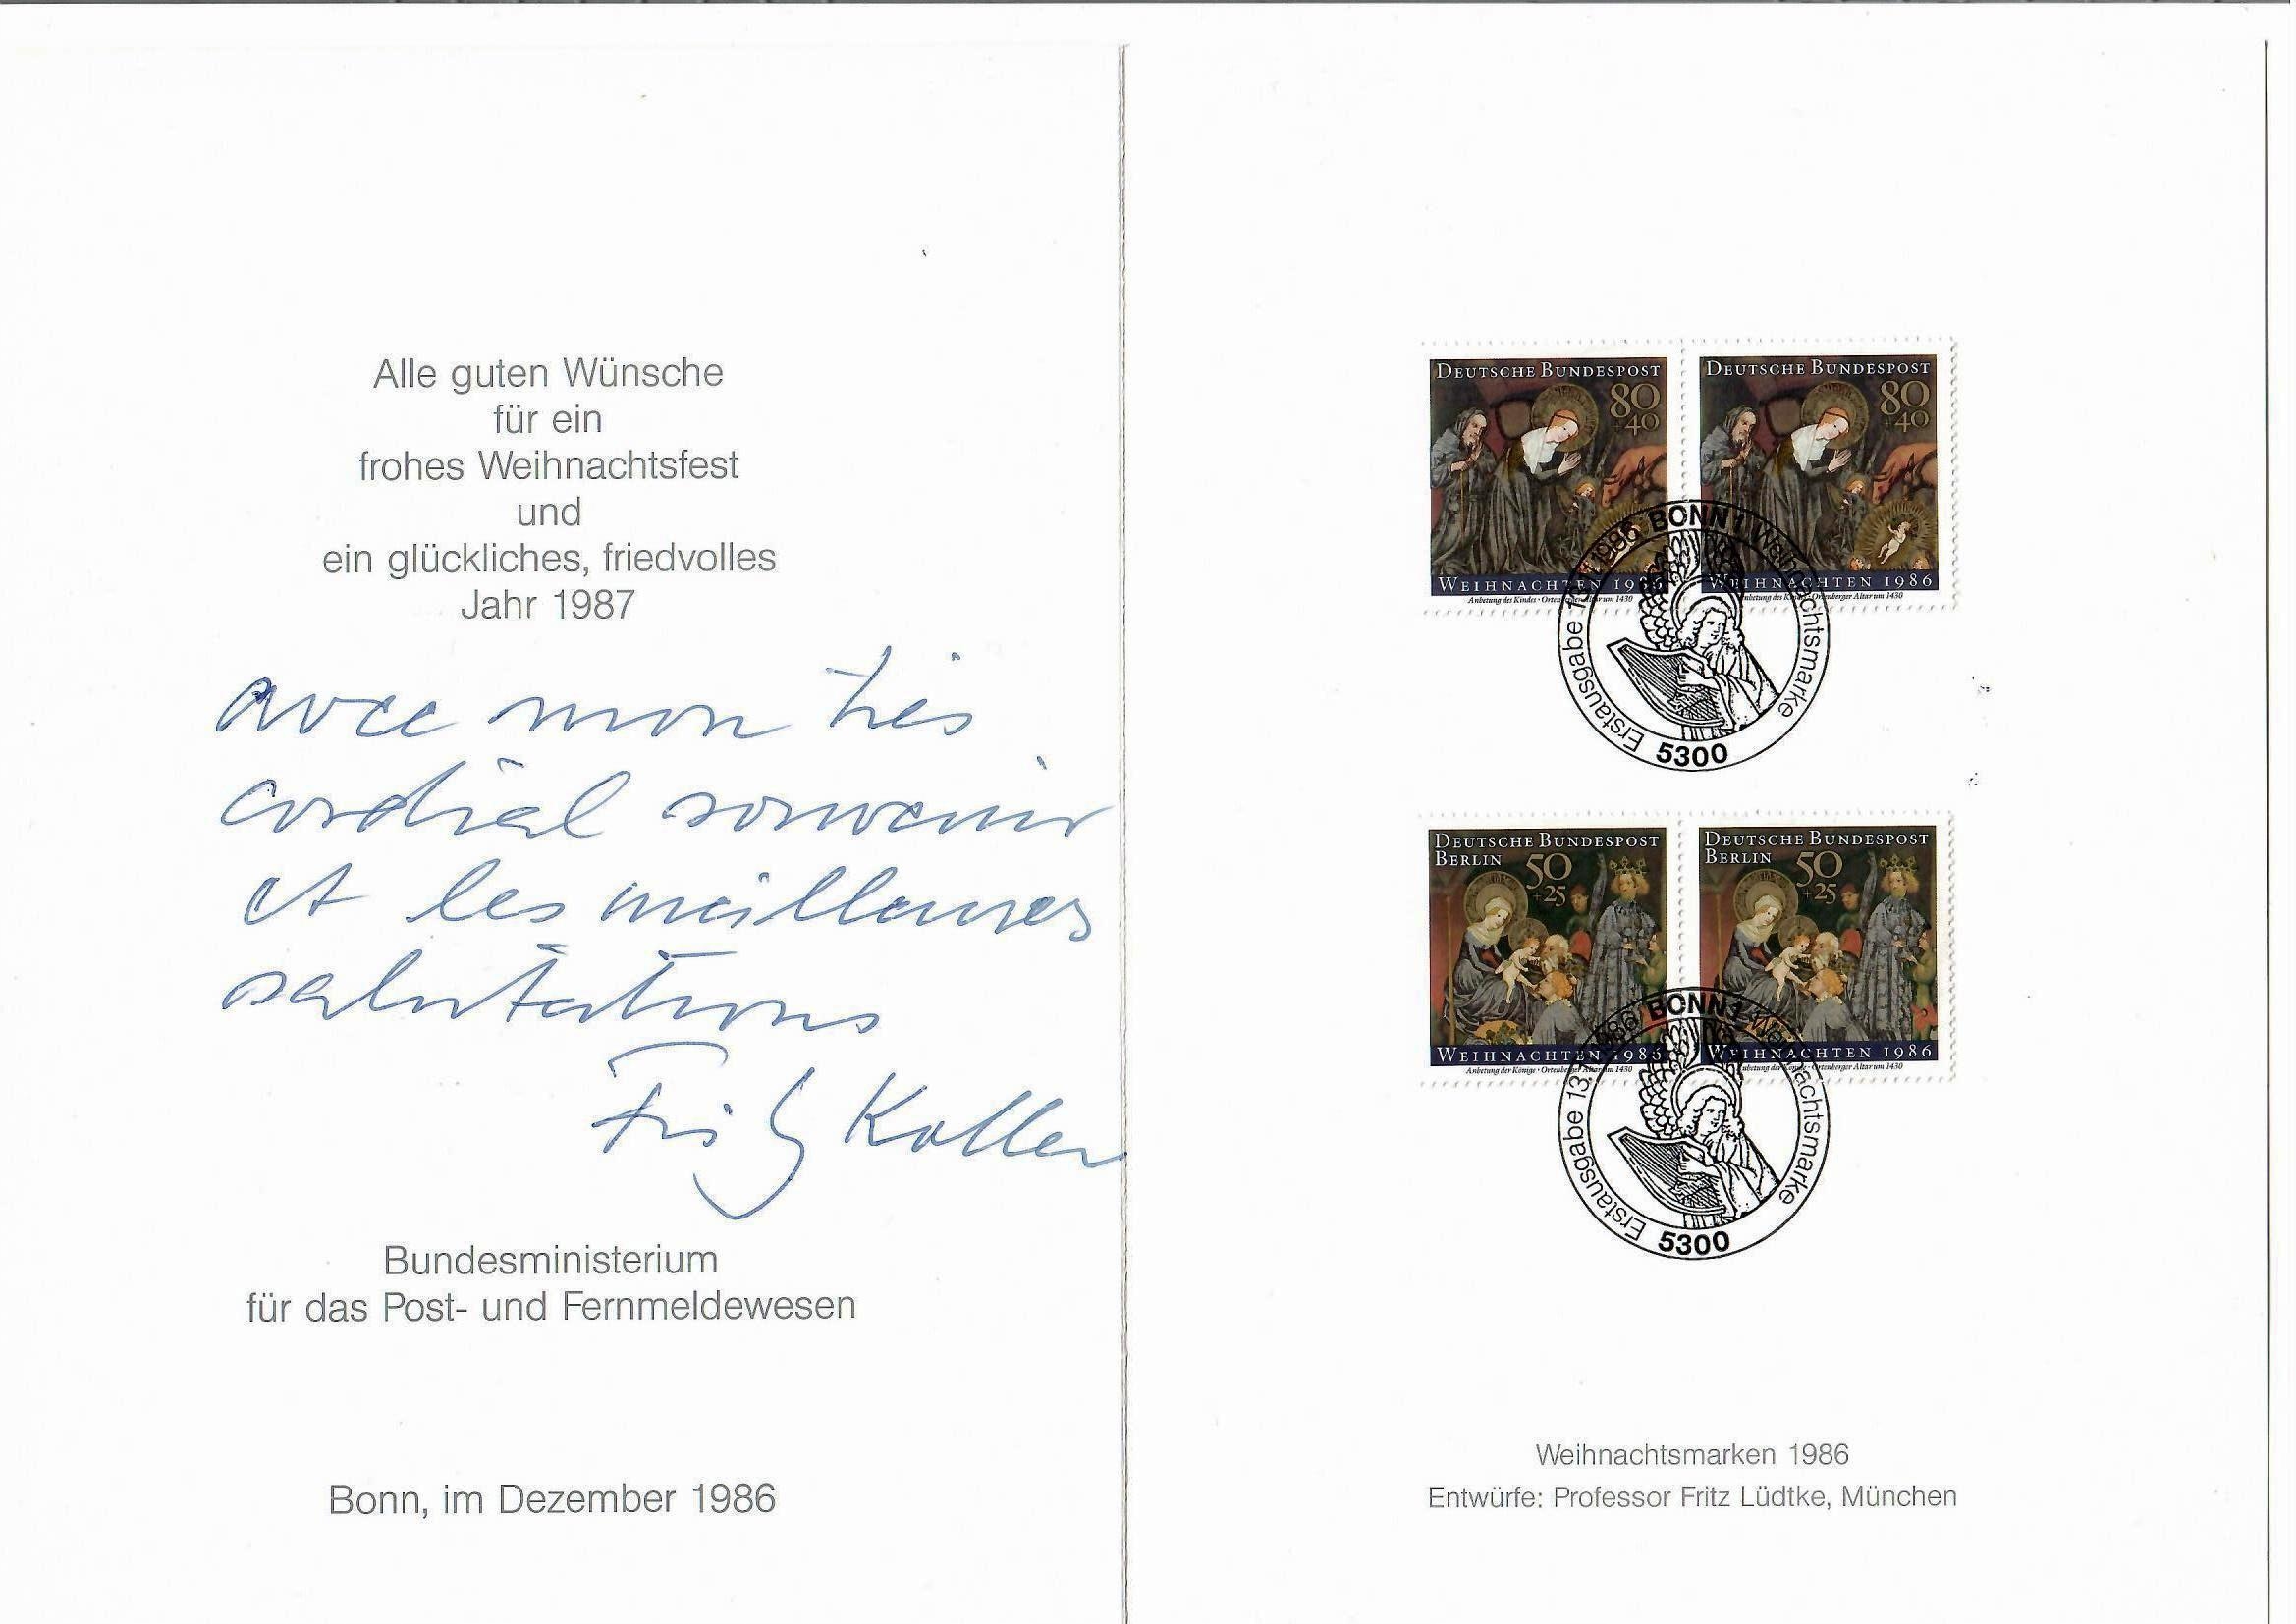 Alle guten Wünsche
für ein
frohes Weihnachtsfest
und
ein glückliches, friedvolles
Jahr 1987
avec mon très
cordial souvenir
et les meilleures
salutations
Fritz Koller
Bundesministerium
für das Post- und Fernmeldewesen
Bonn, im Dezember 1986
DEUTSCHE BUNDESPOST
80
+40
WEIHNACHTEN 1986
Anbetung des Kindes • Ortenberger Altar um 1430
DEUTSCHE BUNDESPOST
80
+40
WEIHNACHTEN 1986
Anbetung des Kindes • Ortenberger Altar um 1430
Erstausgabe 13.11.1986 BONN 1 Weihnachtsmarke
5300
DEUTSCHE BUNDESPOST
BERLIN 50
+25
WEIHNACHTEN 1986
Anbetung der Könige • Ortenberger Altar um 1430
DEUTSCHE BUNDESPOST
BERLIN 50
+25
WEIHNACHTEN 1986
Anbetung der Könige • Ortenberger Altar um 1430
Erstausgabe 13.11.1986 BONN 1 Weihnachtsmarke
5300
Weihnachtsmarken 1986
Entwürfe: Professor Fritz Lüdtke, München